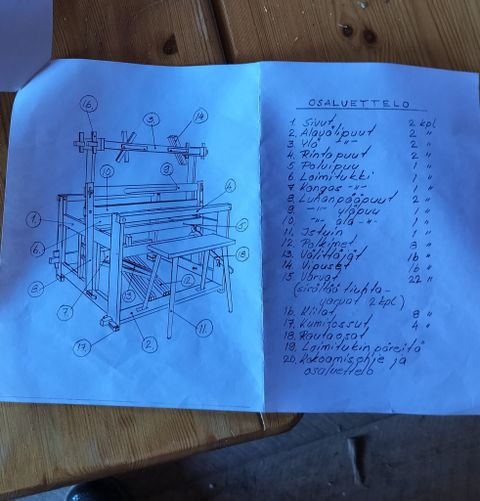 16.
3
14
10
9
4
1
6.
5
18
8.
13
12
7
11.
17.
2
OSALUETTELO
1. Sivut 2 kpl
2. Alavälipuut 2 "
3 Ylä -"- 2 "
4. Rintapuut 2 "
5 Polvipuu 1 "
6 Loimitukki 1 "
7 Kangas -"- 1 "
8. Luhanpääpuut 2 "
9 -"- yläpuu 1 "
10. -"- ala -"- 1 "
11. Istuin 1 "
12. Polkimet 8 "
13. Välittäjät 16 "
14. Vipuset 16 "
15. Varvat 22 "
(sisältää tiuhta-
varvat 2 kpl)
16. Kiilat 8 "
17. Kumitossut 4 "
18. Rautaosat
19. Loimitukin päreitä
20. Kokoamisohje ja
osaluettelo